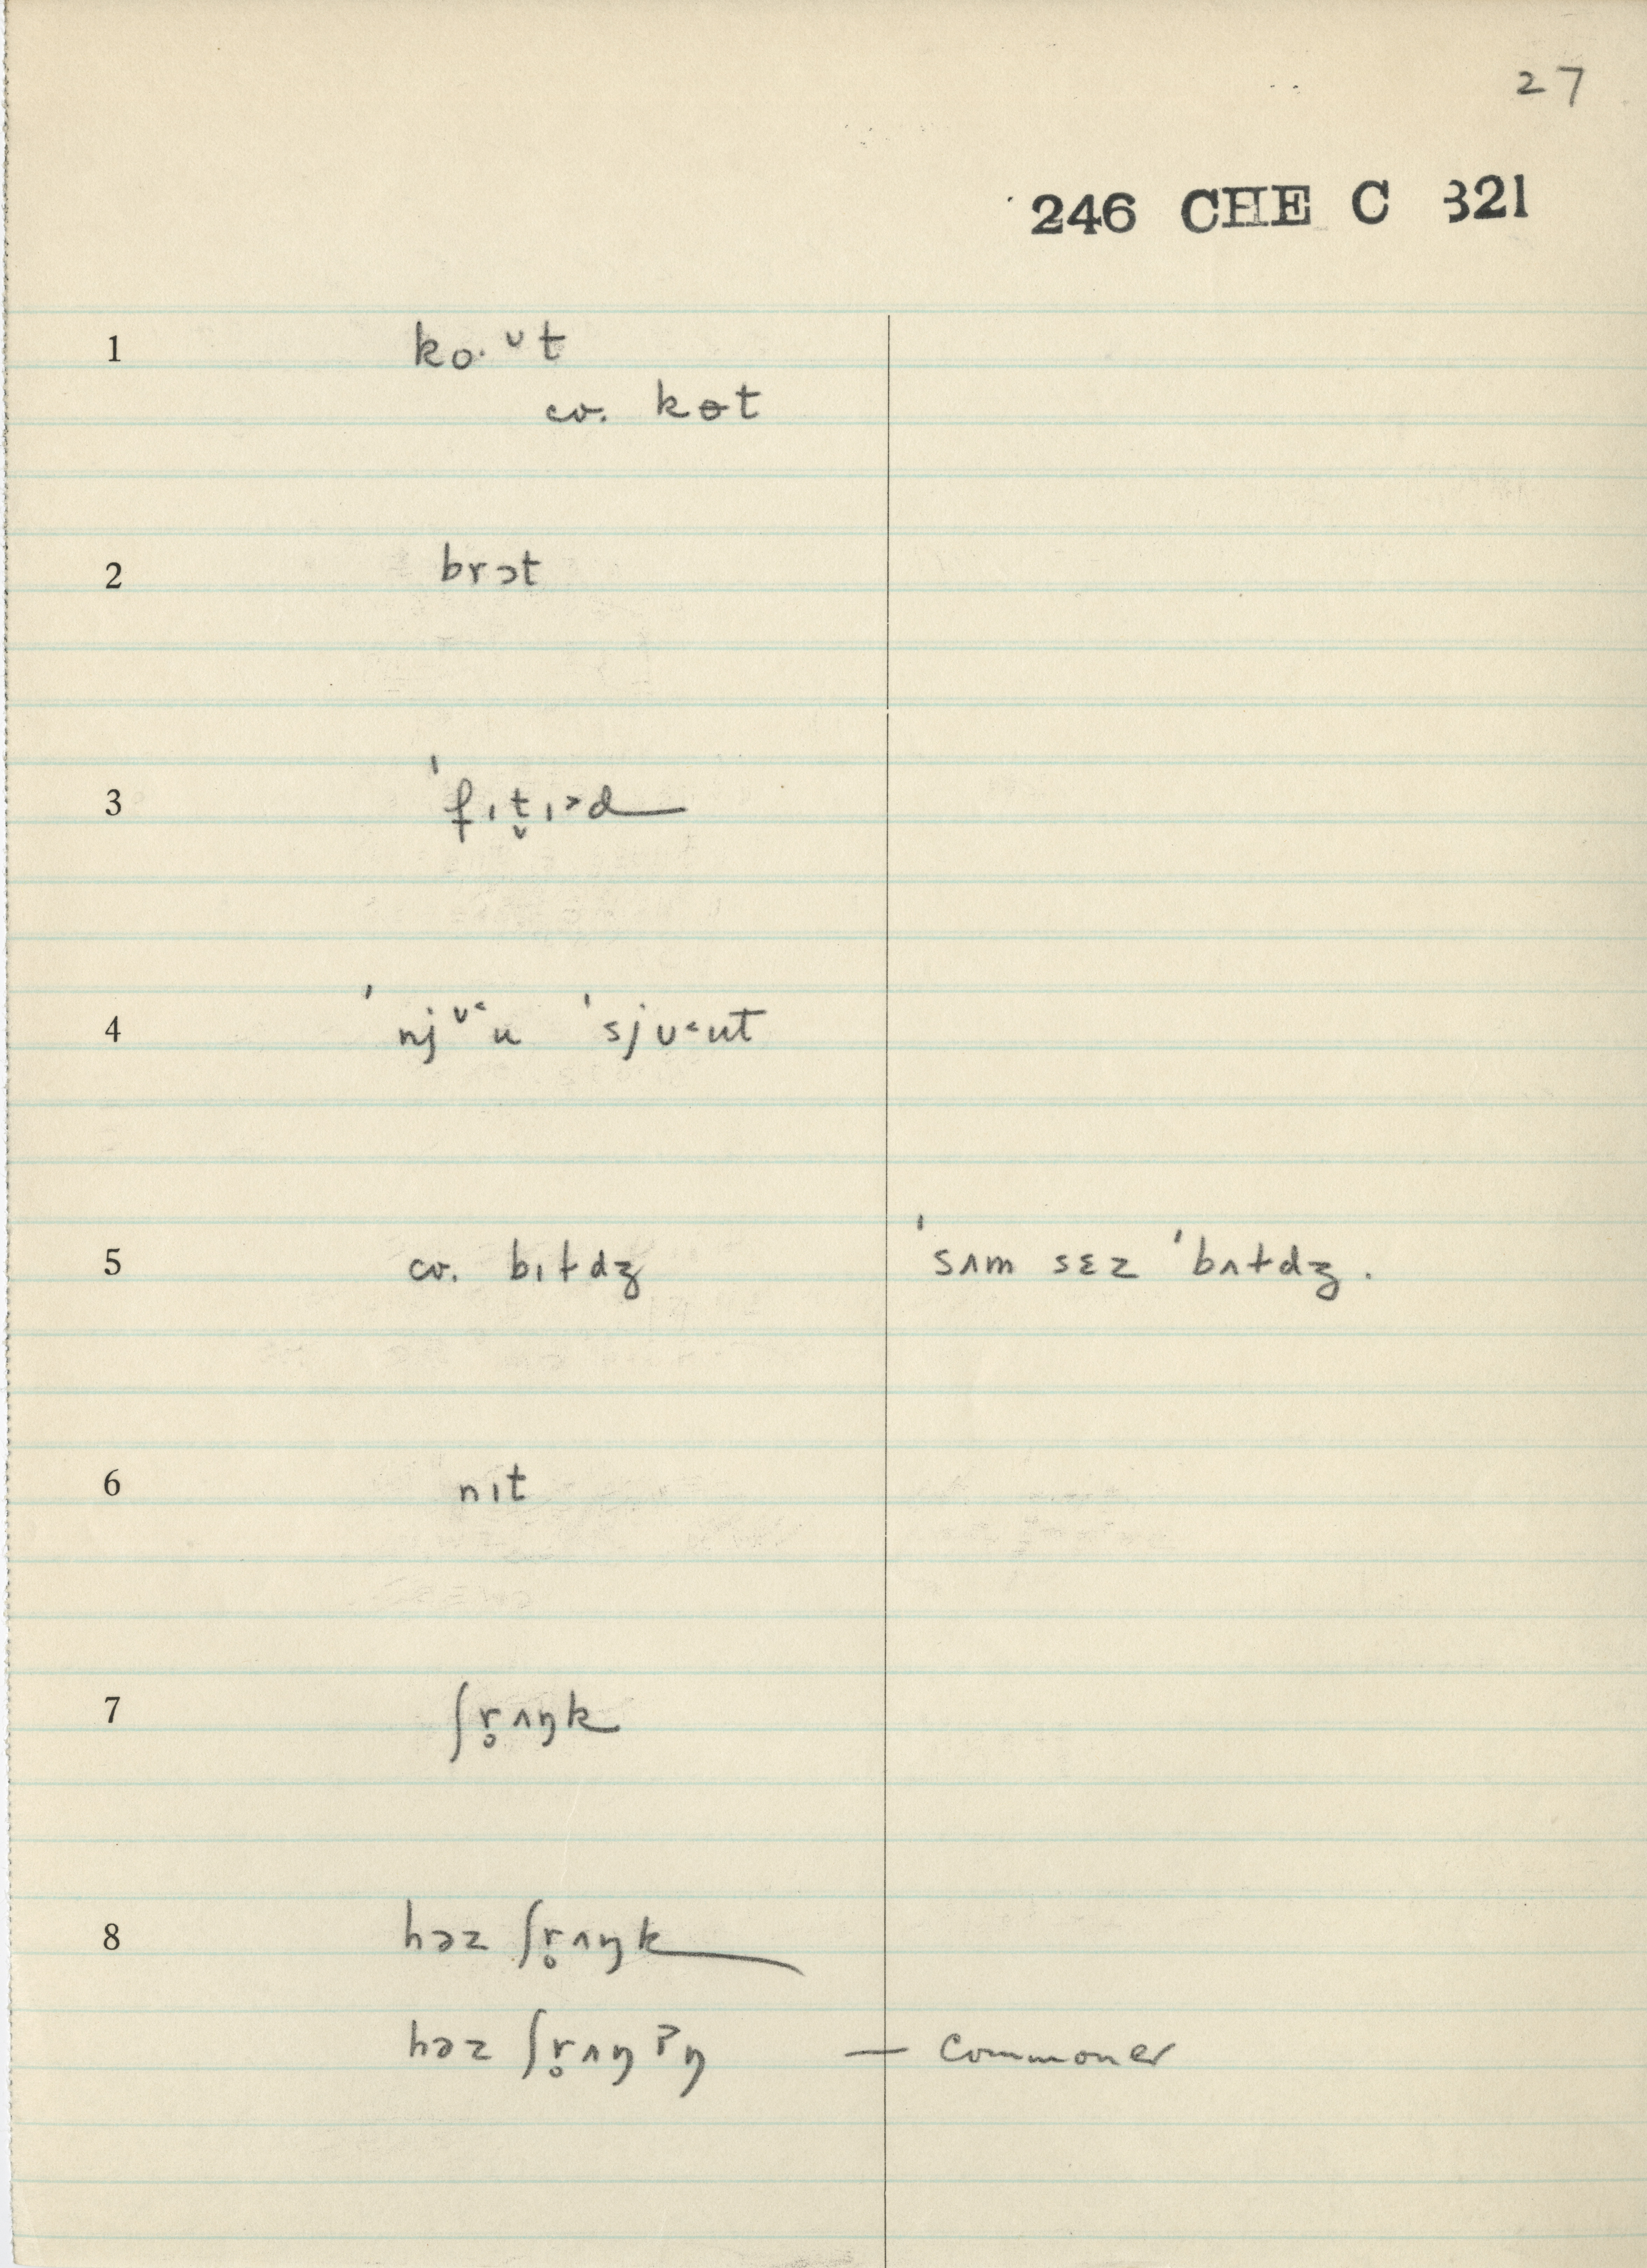 27
246 CHE C 321
1 ko· ᴜt
cv. kɵt
2 brɔt
3 ˈfɪt̬ɪ˃d
4 ˈnjᴜ˂u ˈsjᴜ˂ut
5 cv. bɪɫdʒ ˈsʌm sɛz ˈbʌɫdʒ.
6 nɪt
7 ʃr̥ʌŋk
8 həz ʃr̥ʌŋk
həz ʃr̥ʌŋʔŋ — commoner